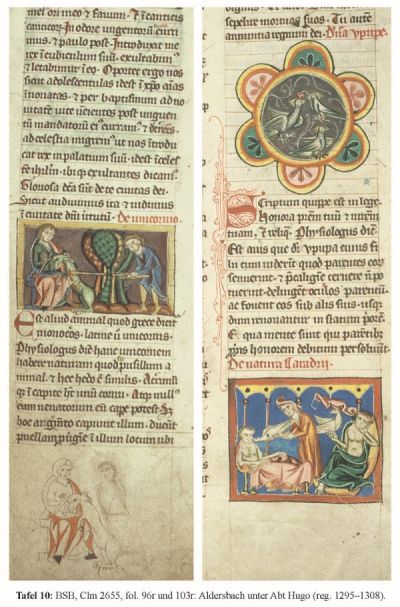 mel ori meo & fauum. Et ī canticis
canticor. In odore ungentorū curri
mus. & paulo post. Introduxit me
rex ī cubiculum suum. exultabim᷒
& letabimur ī eo. Oportet ergo nos
sicut adolescentulas idest ī xp̄o aīas
īnouatas. & per baptismum ad no
uitatē uite ueniētes post unguen
tū mandatorū ei᷒ curram᷒. &
ad celestia migrem᷒ ut nos ītrodu
cat rex in palatium suū. idest ī celes
tē ihrl̄m. ibi exultantes dicam᷒.
Gloriosa dc̄a sūt de te ciuitas dei.
Sicut audiuimus ita & uidimus
ī ciuitate dn̄i uirtutū. De unicorno.
Est aliud animal quod grece dicit᷒
monoceros. latine ũ unicornus.
Physiologus dic̄ hanc unicornem
habere naturam quod pusillum a
nimal. & hec hedo ē similis. Acerrimū
īn capite h̄t unū cornu. Atq᷒ null᷒
eum uenatorum eū capere potest. Sʒ
hoc argum̄to capiunt illum. ducūt
puellam in illum locum ubi
sepelire mortuos suos. Tu autē
annuntia regnum dei. Dīa upupe.
Scriptum quippe est in lege.
Honora pr̄em tuū & mr̄em
tuam. & reliq̄. Physiologus dic̄
Est auis que dr̄ upupa cuius fi
lii cum uiderint quod parentes eor᷒
senuerīt. & p̄ caliginē cernere n̄ po
tuerīt delingūt oculos parentū.
ac fouent eos sub alis suis. usq᷒
dum renouantur in statum
qua mente sunt qui parētib᷒
ppriis honorem debitum persoluūt.
De natura Caradrii.
Tafel 10: BSB, Clm 2655, fol. 96r und 103r: Aldersbach unter Abt Hugo (reg. 1295–1308).